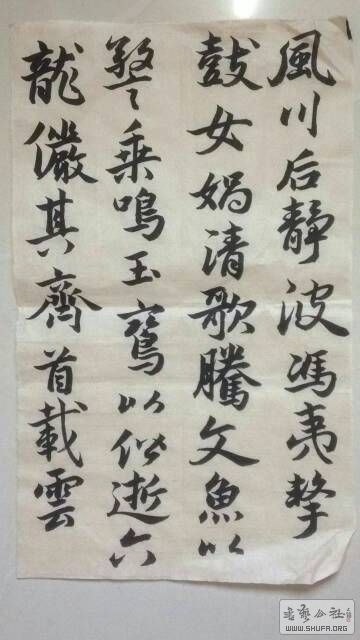 風川后靜波馮夷擊
鼓女媧清歌騰文魚以
警乘鳴玉鸞以偕逝六
龍儼其齊首載雲
书法公社
WWW.SHUFA.ORG